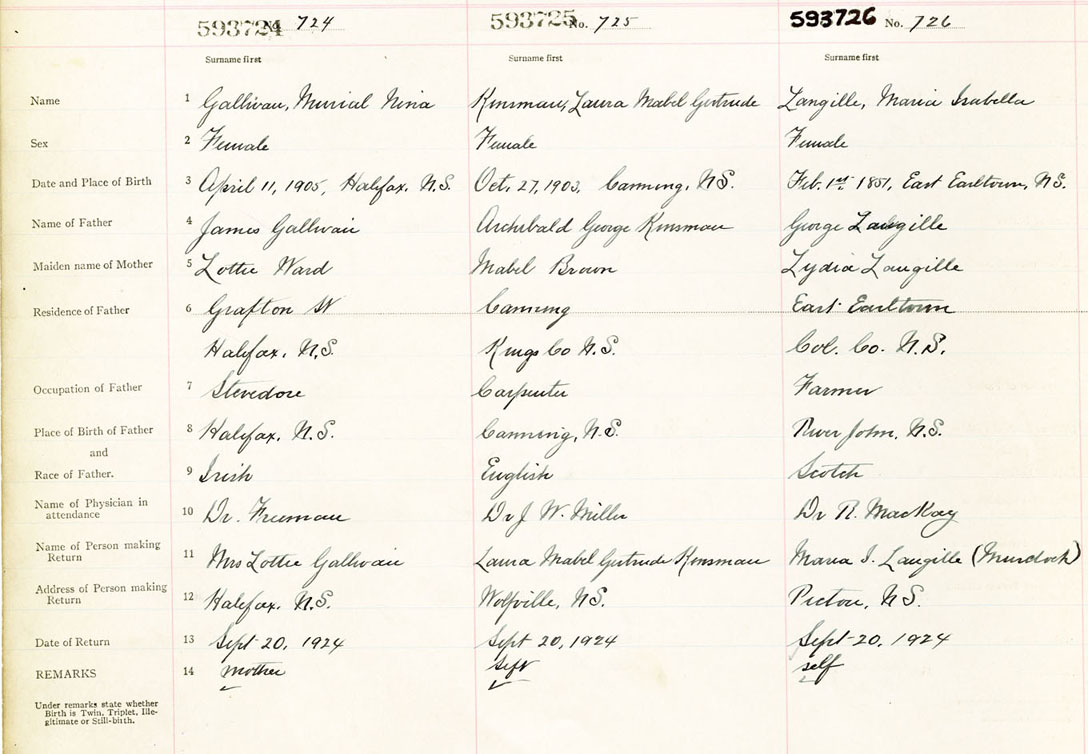 593724 No. 724 593725 No. 725 593726 No. 726
Surname first Surname first Surname first
Name 1 Gallivan, Murial Nina Kinsman, Laura Mabel Gertrude Langille, Maria Isabella
Sex 2 Female Female Female
Date and Place of Birth 3 April 11, 1905, Halifax, N.S. Oct, 27, 1903, Canning, N.S. Feb. 1st 1851, East Earltown, N.S.
Name of Father 4 James Gallivan Archibald George Kinsman George Langille
Maiden name of Mother 5 Lottie Ward Mabel Brown Lydia Langille
Residence of Father 6 Grafton St Canning East Earltown
Halifax, N.S. Kings Co N.S. Col. Co. N.S.
Occupation of Father 7 Stevedore Carpenter Farmer
Place of Birth of Father 8 Halifax, N.S. Canning, N.S. River John, N.S.
and
Race of Father. 9 Irish English Scotch
Name of Physician in attendance 10 Dr. Freeman Dr J. W. Miller Dr R. MacKay
Name of Person making Return 11 Mrs Lottie Gallivan Laura Mabel Gertrude Kinsman Maria I. Langille (Murdock)
Address of Person making Return 12 Halifax, N.S. Wolfville, N.S. Pictou, N.S.
Date of Return 13 Sept 20, 1924 Sept 20, 1924 Sept 20, 1924
REMARKS 14 mother self self
Under remarks state whether
Birth is Twin, Triplet, Ille-
gitimate or Still-birth.